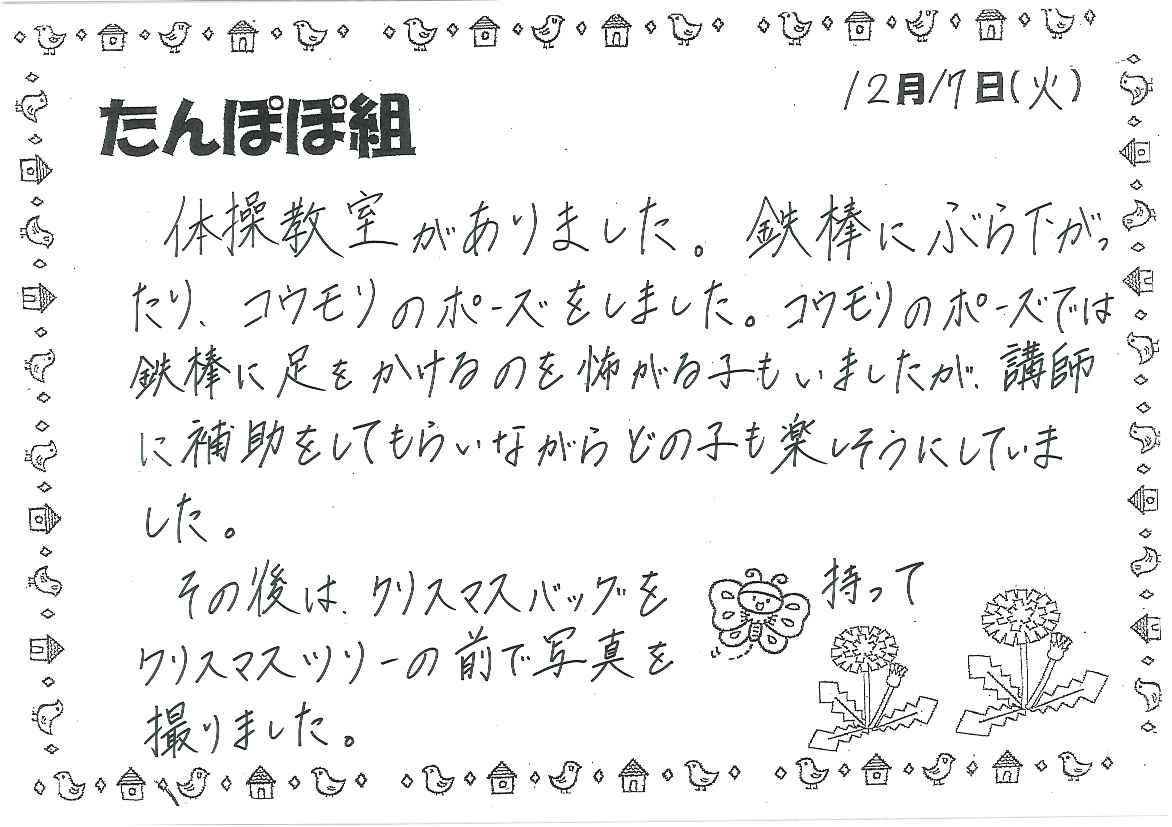 12月17日(火)
たんぽぽ組
体操教室がありました。鉄棒にぶら下がっ
たり、コウモリのポーズをしました。コウモリのポーズでは
鉄棒に足をかけるのを怖がる子もいましたが、講師
に補助をしてもらいながらどの子も楽しそうにしていま
した。
その後は、クリスマスバッグを 持って
クリスマスツリーの前で写真を
撮りました。